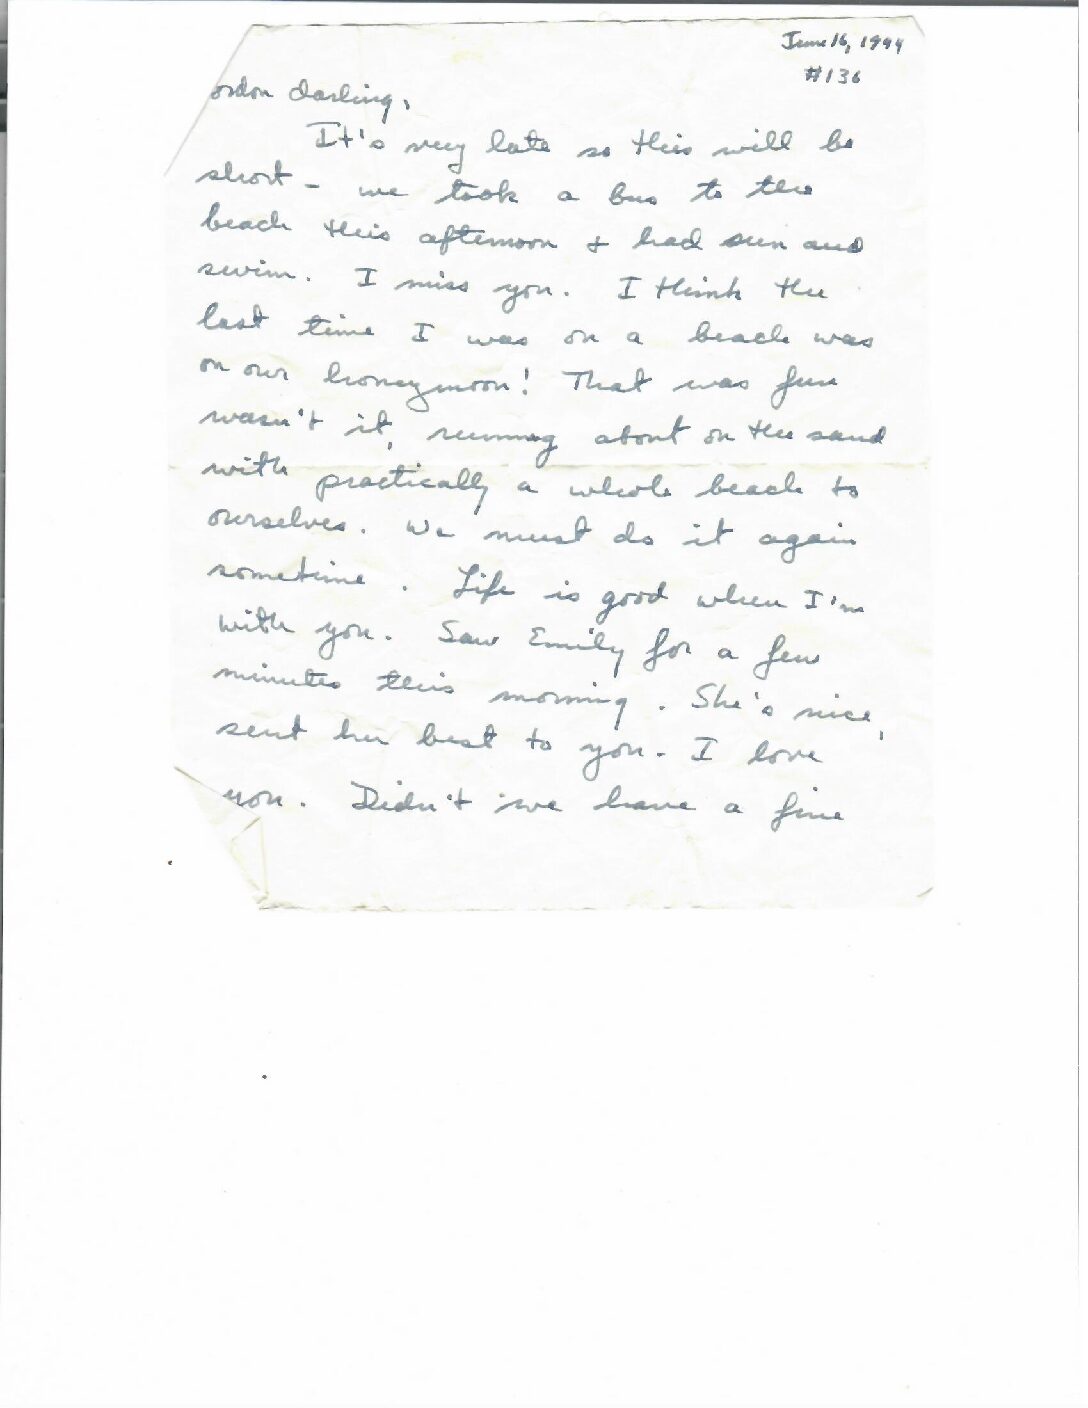 June 16, 1944
#136
ordon darling,
It's very late so this will be
short - we took a bus to the
beach this afternoon + had sun and
swim. I miss you. I think the
last time I was on a beach was
on our honeymoon! That was fun
wasn't it, running about on the sand
with practically a whole beach to
ourselves. We must do it again
sometime. Life is good when I'm
with you. Saw Emily for a few
minutes this morning. She's nice,
sent her best to you - I love
you. Didn't we have a fine